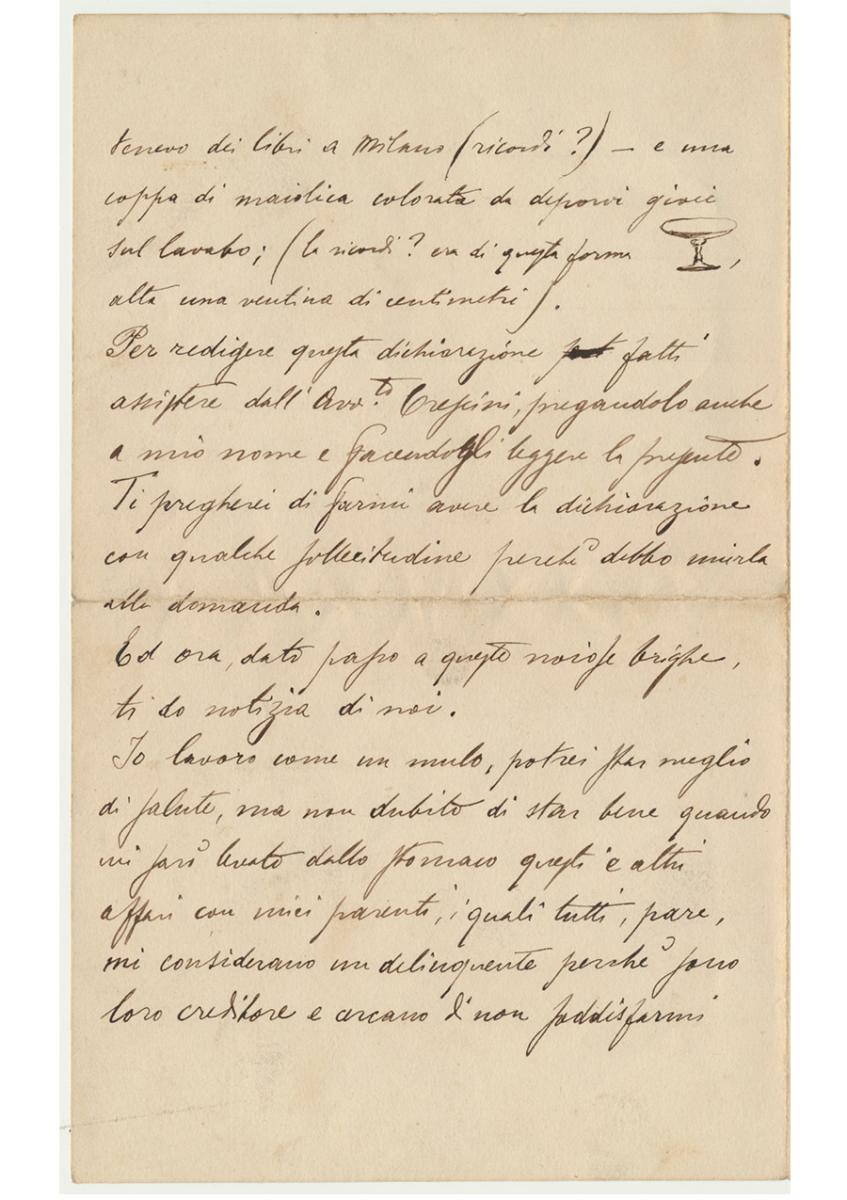 tenevo dei libri a Milano (ricordi?) – e una
coppa di maiolica colorata da deporvi gioie
sul lavabo; (la ricordi? era di questa forma ,
alta una ventina di centimetri).
Per redigere questa dichiarazione fatti
assistere dall'Avv.to Crespini, pregandolo anche
a mio nome e facendogli leggere la presente.
Ti pregherei di farmi avere la dichiarazione
con qualche sollecitudine perchè debbo unirla
alla domanda.
Ed ora, dato passo a queste noiose brighe,
ti do notizia di noi.
Io lavoro come un mulo, potrei star meglio
di salute, ma non dubito di star bene quando
mi sarò levato dallo stomaco questi e altri
affari con miei parenti, i quali tutti, pare,
mi considerano un delinquente perchè sono
loro creditore e cercano di non soddisfarmi